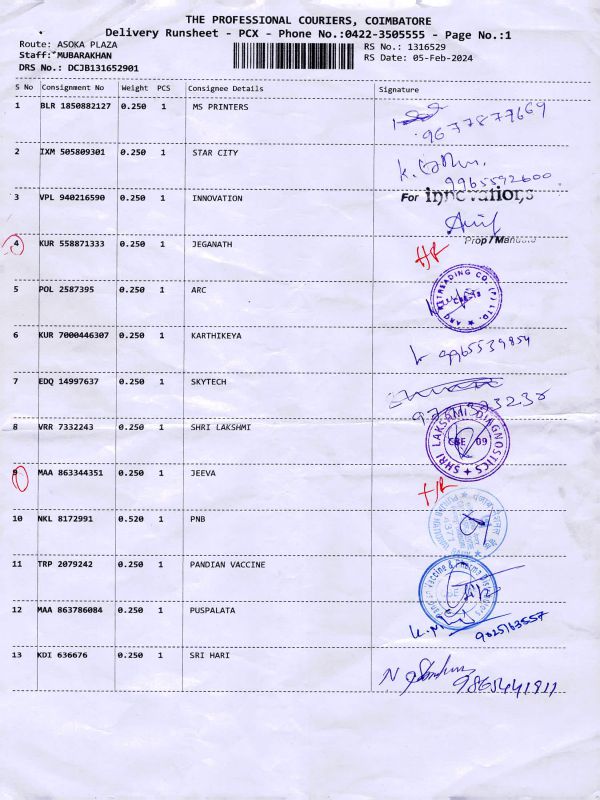 THE PROFESSIONAL COURIERS, COIMBATORE
Delivery Runsheet - PCX - Phone No.:0422-3505555 - Page No.:1
Route: ASOKA PLAZA RS No.: 1316529
Staff:*MUBARAKHAN RS Date: 05-Feb-2024
DRS No.: DCJB131652901
S No Consignment No Weight PCS Consignee Details Signature
1 BLR 1850882127 0.250 1 MS PRINTERS
9677877669
2 IXM 505809301 0.250 1 STAR CITY
9965592600
3 VPL 940216590 0.250 1 INNOVATION For innovations
Prop/
4 KUR 558871333 0.250 1 JEGANATH
5 POL 2587395 0.250 1 ARC
6 KUR 7000446307 0.250 1 KARTHIKEYA
9965539854
7 EDQ 14997637 0.250 1 SKYTECH
8 VRR 7332243 0.250 1 SHRI LAKSHMI SHRI LAKSAMI DIAGNOSTICS CBE 09
9 MAA 863344351 0.250 1 JEEVA
10 NKL 8172991 0.520 1 PNB
11 TRP 2079242 0.250 1 PANDIAN VACCINE
12 MAA 863786084 0.250 1 PUSPALATA
9025163557
13 KDI 636676 0.250 1 SRI HARI
9865441911